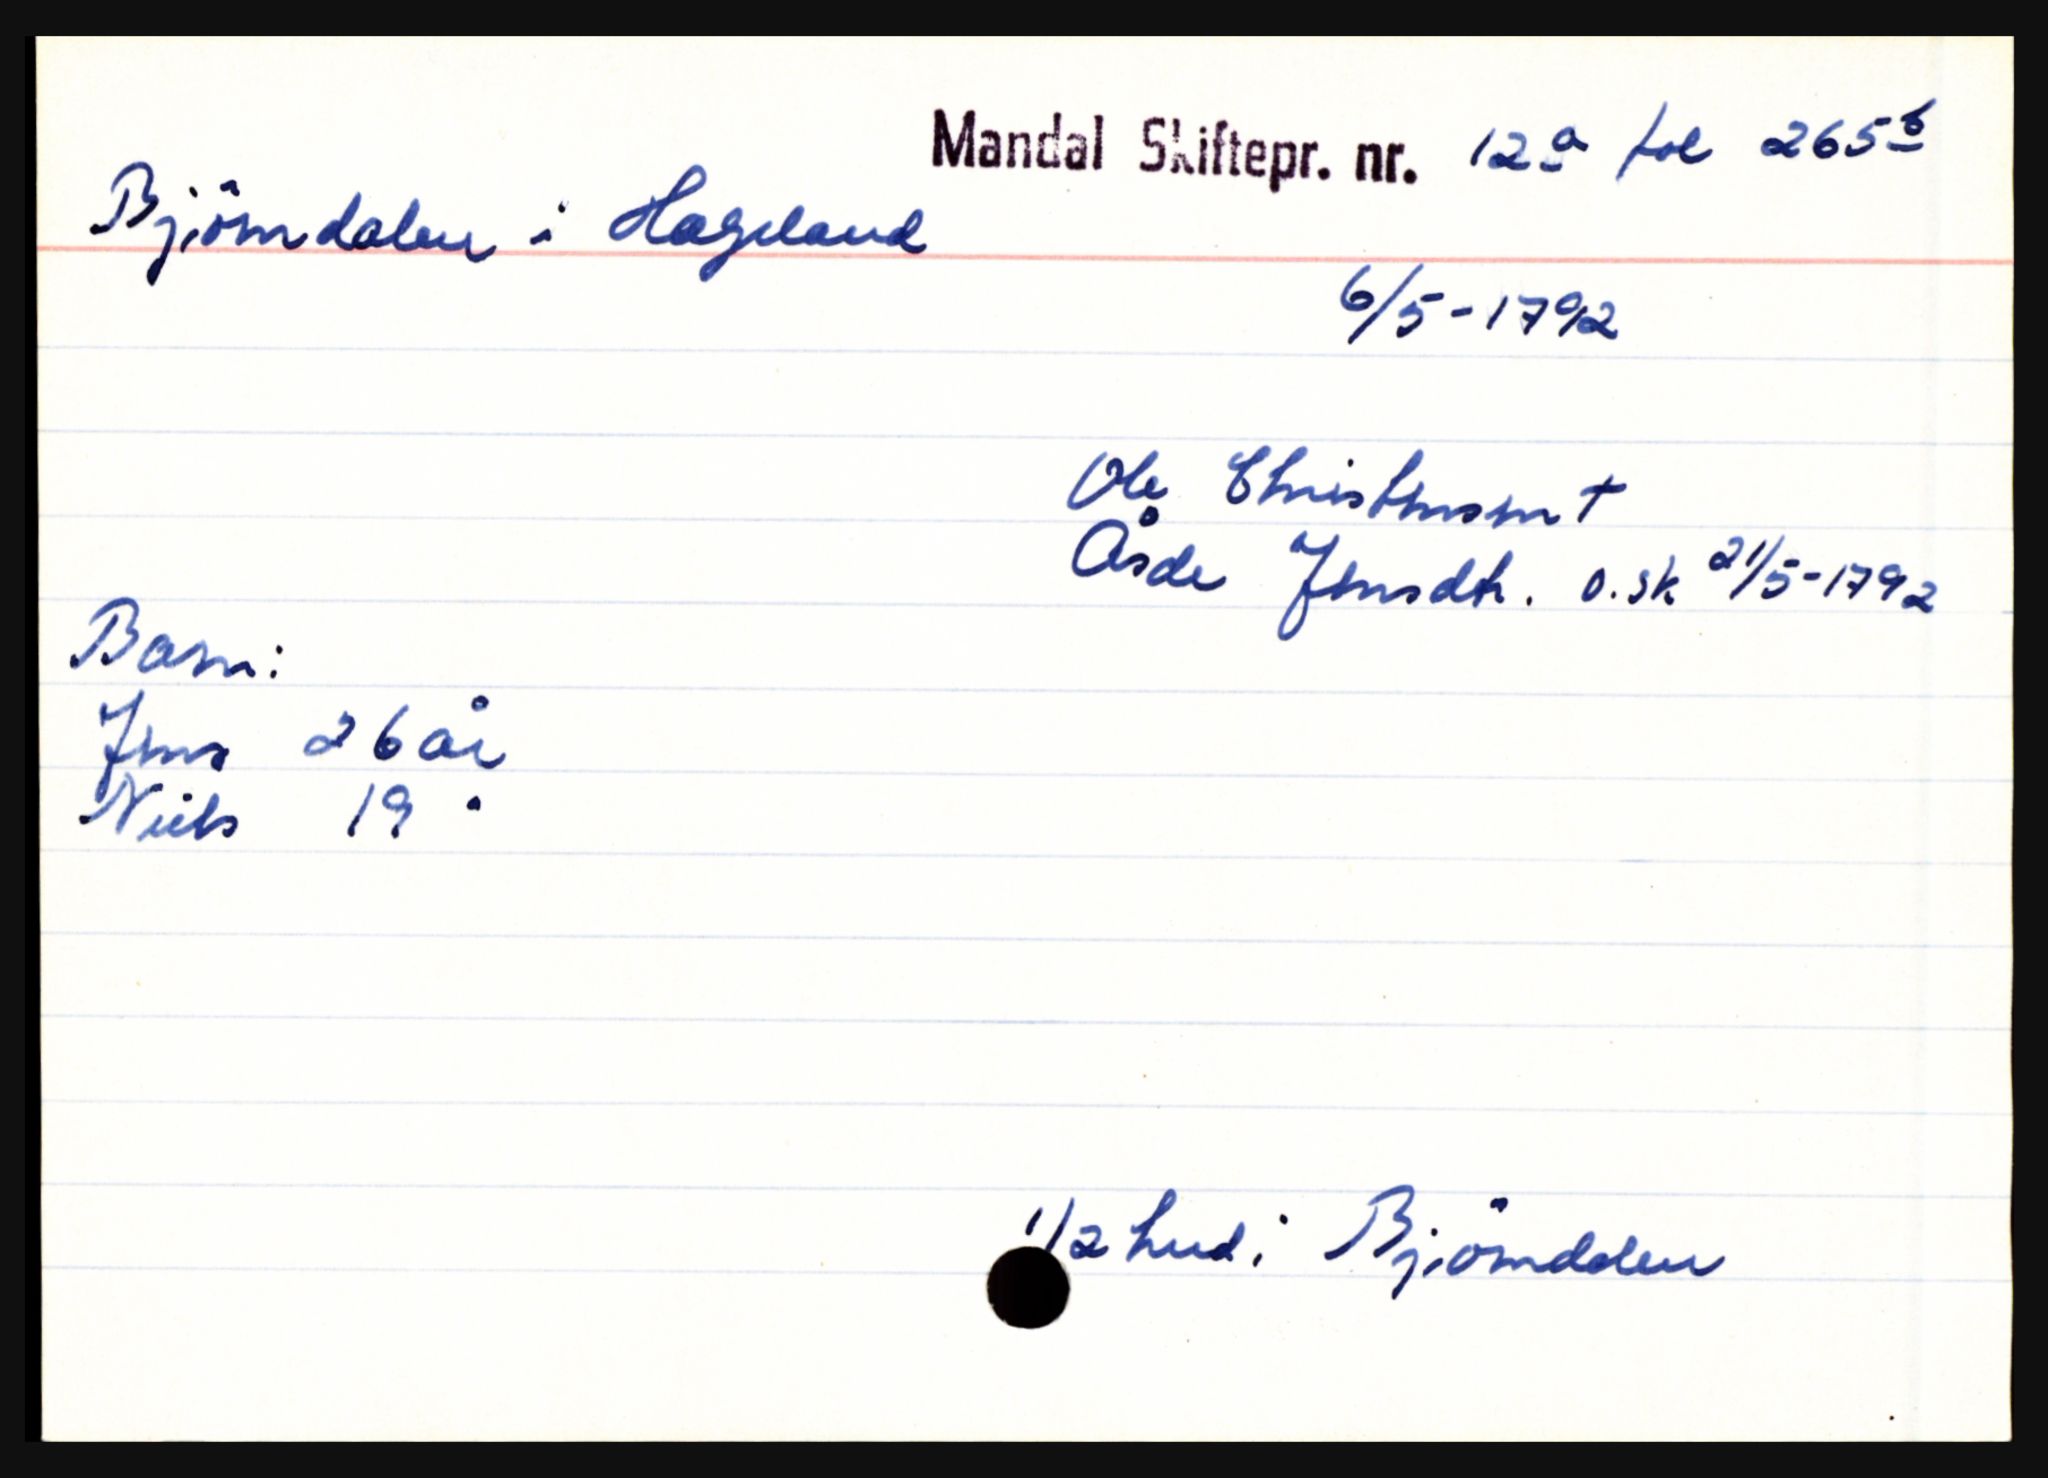 Mandal Skiftepr. nr. 12a fol 265b
Bjørndalen i Hageland
6/5-1792
Ole Christensen †
Åsde Jensdtr. o.sk 21/5-1792
Barn:
Jens 26 år
Niels 19 "
1/2 hud i Bjørndalen